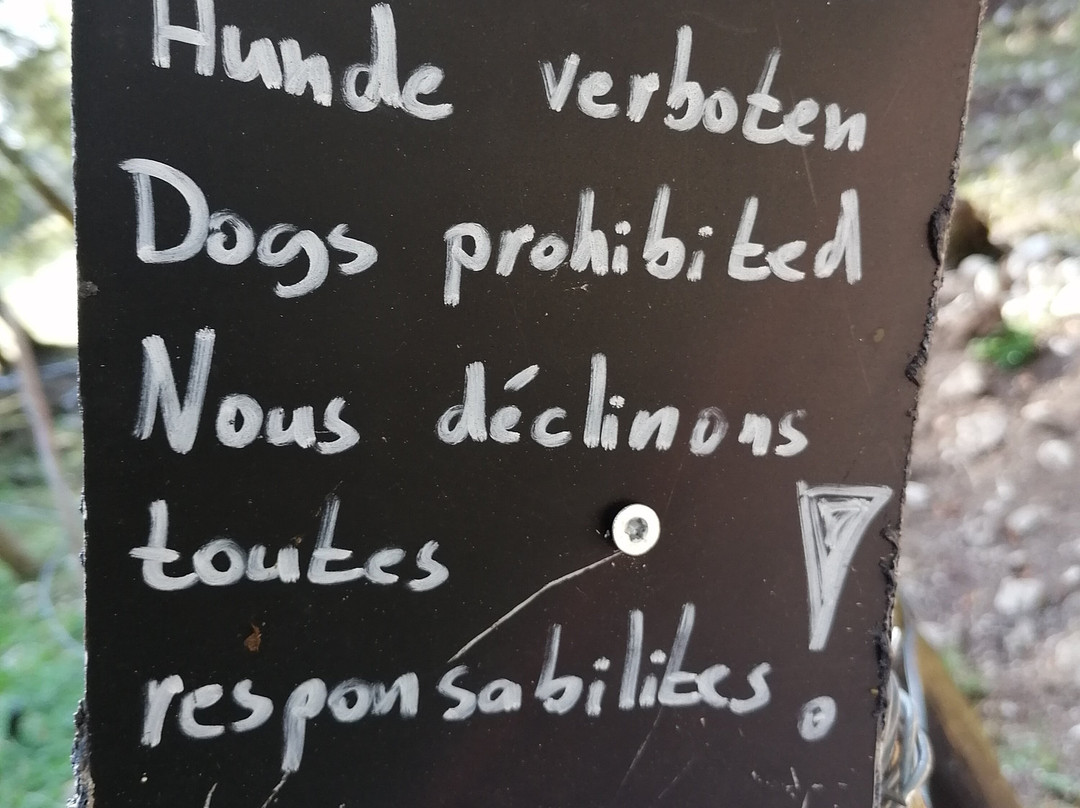 Hunde verboten
Dogs prohibited
Nous déclinons
toutes
responsabilites!